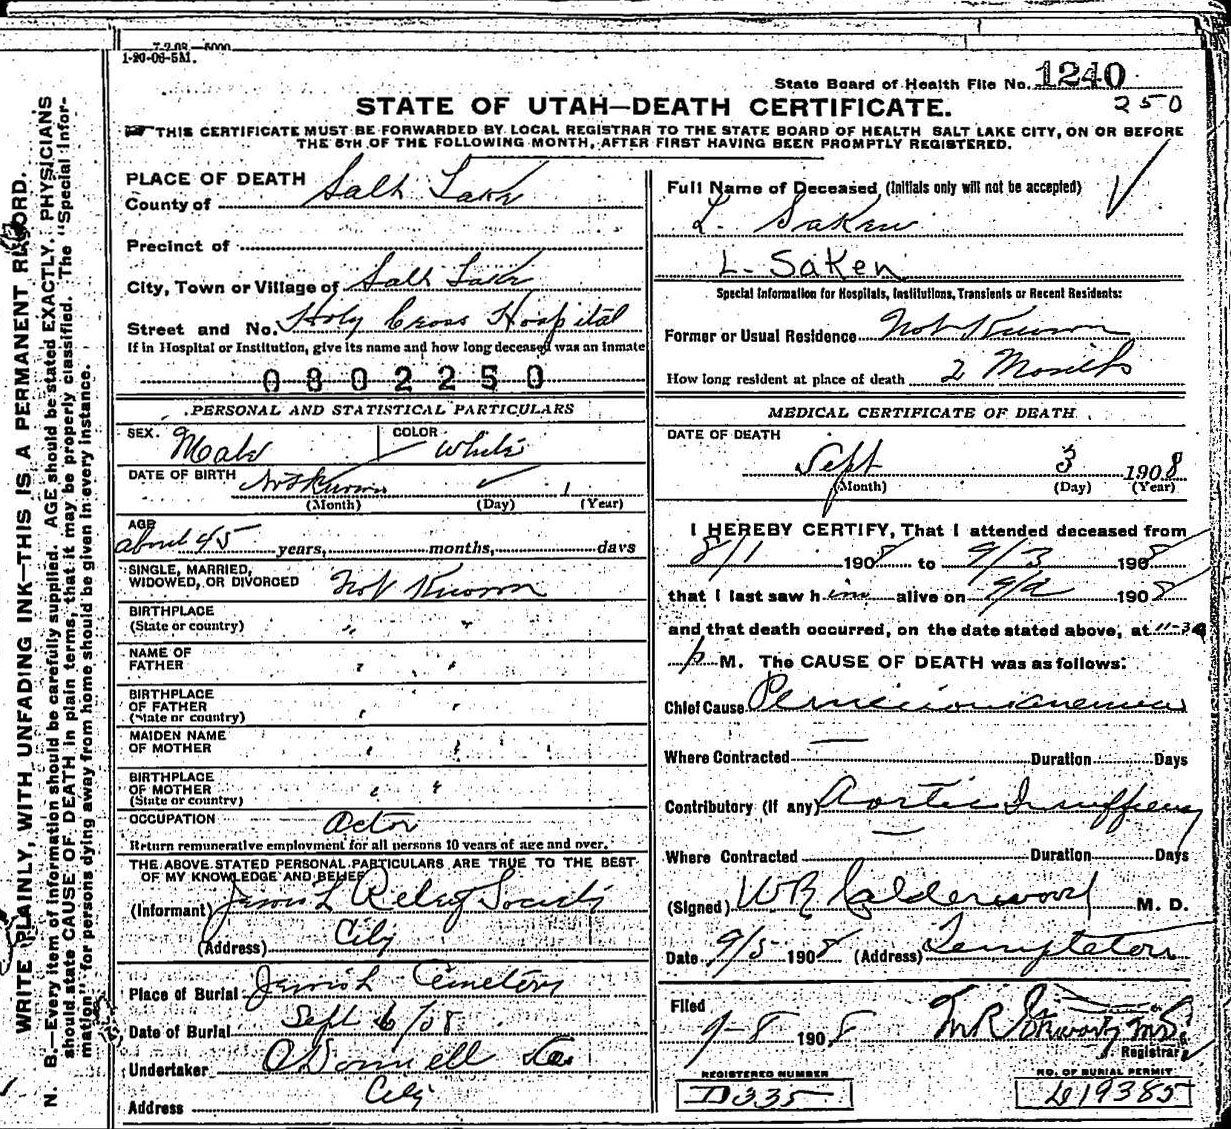 7-2 08-5000
1-20-06-5M.
State Board of Health File No. 1240
250
STATE OF UTAH—DEATH CERTIFICATE.
THIS CERTIFICATE MUST BE FORWARDED BY LOCAL REGISTRAR TO THE STATE BOARD OF HEALTH SALT LAKE CITY, ON OR BEFORE
THE 5TH OF THE FOLLOWING MONTH, AFTER FIRST HAVING BEEN PROMPTLY REGISTERED.
WRITE PLAINLY, WITH UNFADING INK—THIS IS A PERMANENT RECORD.
N. B.—Every item of information should be carefully supplied. AGE should be stated EXACTLY. PHYSICIANS
should state CAUSE OF DEATH in plain terms, that it may be properly classified. The "Special Infor-
mation" for persons dying away from home should be given in every instance.
PLACE OF DEATH
County of Salt Lake
Precinct of
City, Town or Village of Salt Lake
Street and No. Holy Cross Hospital
If in Hospital or Institution, give its name and how long deceased was an inmate
0802250
PERSONAL AND STATISTICAL PARTICULARS
SEX. Male COLOR White
DATE OF BIRTH Not Known
(Month) (Day) (Year)
AGE
about 45 years, months, days
SINGLE, MARRIED,
WIDOWED, OR DIVORCED Not Known
BIRTHPLACE
(State or country) " "
NAME OF
FATHER " "
BIRTHPLACE
OF FATHER
(State or country) " "
MAIDEN NAME
OF MOTHER " "
BIRTHPLACE
OF MOTHER
(State or country) " "
OCCUPATION Actor
Return remunerative employment for all persons 10 years of age and over.
THE ABOVE STATED PERSONAL PARTICULARS ARE TRUE TO THE BEST
OF MY KNOWLEDGE AND BELIEF
(Informant) Jewish Relief Society
(Address) City
Place of Burial Jewish Cemetery
Date of Burial Sept 6/08
Undertaker O'Donnell & Co
Address City
Full Name of Deceased (Initials only will not be accepted)
L. Saken
L. Saken
Special Information for Hospitals, Institutions, Transients or Recent Residents:
Former or Usual Residence Not Known
How long resident at place of death 2 Months
MEDICAL CERTIFICATE OF DEATH
DATE OF DEATH
Sept 3 1908
(Month) (Day) (Year)
I HEREBY CERTIFY, That I attended deceased from
8/1 1908 to 9/3 1908
that I last saw him alive on 9/2 1908
and that death occurred, on the date stated above, at 11-30
p M. The CAUSE OF DEATH was as follows:
Chief Cause Pernicious anemia
Where Contracted Duration Days
Contributory (If any) Aortic Insufficiency
Where Contracted Duration Days
(Signed) WR Calderwood M. D.
Date 9/5 1908 (Address) Templeton
Filed
9-8 1908 M R
Registrar
REGISTERED NUMBER
D335
NO. OF BURIAL PERMIT
19385